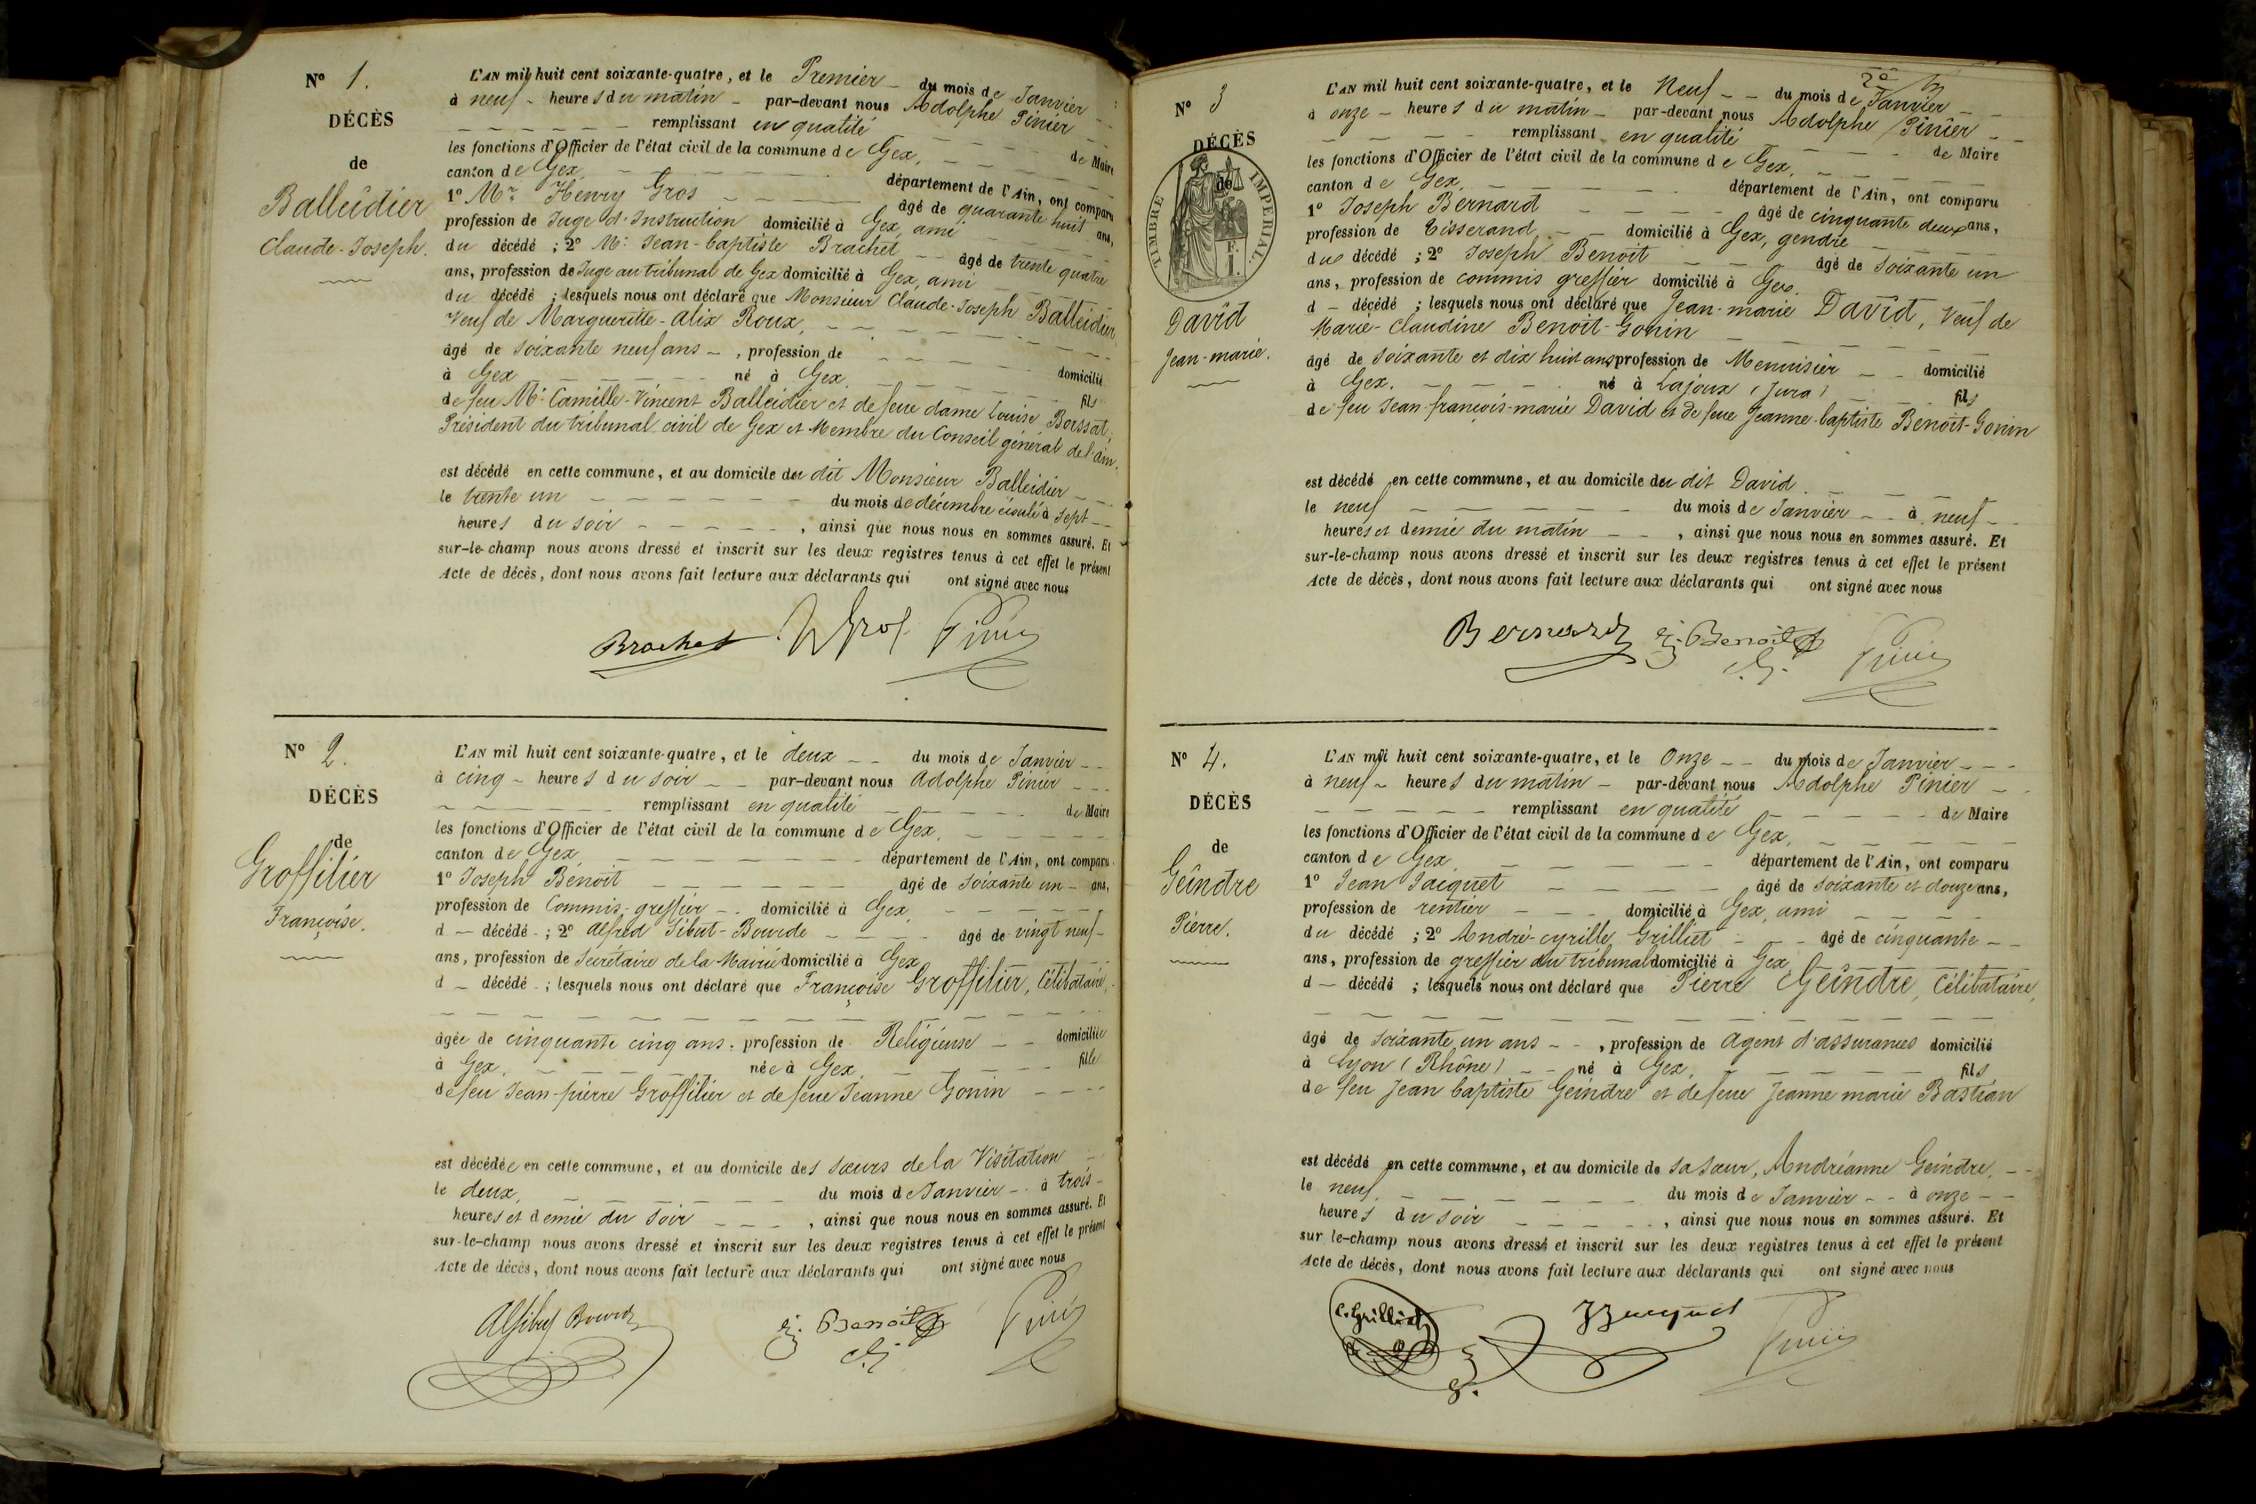 N° 1.
DÉCÈS
de
Balleidier
Claude-Joseph.
L'AN mil huit cent soixante-quatre, et le Premier du mois de Janvier
à neuf heures du matin par-devant nous Adolphe Pinier
remplissant en qualité de Maire
les fonctions d'Officier de l'état civil de la commune de Gex,
canton de Gex, département de l'Ain, ont comparu
1° Mr Henry Gros âgé de quarante huit ans,
profession de Juge d'Instruction domicilié à Gex, ami
du décédé ; 2° Mr Jean-baptiste Brachet âgé de trente quatre
ans, profession de Juge au tribunal de Gex domicilié à Gex, ami
du décédé ; lesquels nous ont déclaré que Monsieur Claude-Joseph Balleidier,
Veuf de Margueritte-alix Roux,
âgé de soixante neuf ans, profession de
domicilié
à Gex né à Gex, fils
de feu Mr Camille-Vincent Balleidier et de feue dame Louise Borssat;
Président du tribunal civil de Gex et Membre du Conseil général de l'ain.
est décédé en cette commune, et au domicile du dit Monsieur Balleidier
le trente un du mois de décembre écoulé à sept
heures du soir, ainsi que nous nous en sommes assuré. Et
sur-le-champ nous avons dressé et inscrit sur les deux registres tenus à cet effet le présent
Acte de décès, dont nous avons fait lecture aux déclarants qui ont signé avec nous
Brachet Gros Pinier
N° 2.
DÉCÈS
de
Groffilier
Françoise.
L'AN mil huit cent soixante-quatre, et le deux du mois de Janvier
à cinq heures du soir par-devant nous Adolphe Pinier
remplissant en qualité de Maire
les fonctions d'Officier de l'état civil de la commune de Gex,
canton de Gex, département de l'Ain, ont comparu
1° Joseph Benoit âgé de soixante un ans,
profession de Commis-greffier domicilié à Gex,
d décédé ; 2° alfred Sibut-Bourde âgé de vingt neuf
ans, profession de Secrétaire de la Mairie domicilié à Gex,
d décédé ; lesquels nous ont déclaré que Françoise Groffilier, Célibataire,
âgée de cinquante cinq ans. profession de Religieuse domiciliée
à Gex, née à Gex, fille
de feu Jean-pierre Groffilier et de feue Jeanne Gonin
est décédée en cette commune, et au domicile des sœurs de la Visitation
le deux, du mois de Janvier à trois
heures et demie du soir, ainsi que nous nous en sommes assuré. Et
sur-le-champ nous avons dressé et inscrit sur les deux registres tenus à cet effet le présent
Acte de décès, dont nous avons fait lecture aux déclarants qui ont signé avec nous
ASibut Bourde j. Benoit Pinier
2e
N° 3
DÉCÈS
de
TIMBRE IMPERIAL.
David
Jean-marie.
L'AN mil huit cent soixante-quatre, et le Neuf du mois de Janvier
à onze heures du matin par-devant nous Adolphe Pinier
remplissant en qualité de Maire
les fonctions d'Officier de l'état civil de la commune de Gex,
canton de Gex, département de l'Ain, ont comparu
1° Joseph Bernard âgé de cinquante deux ans,
profession de Tisserand, domicilié à Gex, gendre
du décédé ; 2° Joseph Benoit âgé de soixante un
ans, profession de commis greffier domicilié à Gex.
d décédé ; lesquels nous ont déclaré que Jean-marie David, Veuf de
Marie-Claudine Benoit-Gonin
âgé de soixante et dix huit ans profession de Menuisier domicilié
à Gex. né à Lajoux (Jura) fils
de feu Jean-françois-marie David et de feue Jeanne-baptiste Benoit-Gonin
est décédé en cette commune, et au domicile du dit David
le neuf du mois de Janvier à neuf
heures et demie du matin, ainsi que nous nous en sommes assuré. Et
sur-le-champ nous avons dressé et inscrit sur les deux registres tenus à cet effet le présent
Acte de décès, dont nous avons fait lecture aux déclarants qui ont signé avec nous
Bernard j. Benoit Pinier
N° 4.
DÉCÈS
de
Geindre
Pierre.
L'AN mil huit cent soixante-quatre, et le Onze du mois de Janvier
à neuf heures du matin par-devant nous Adolphe Pinier
remplissant en qualité de Maire
les fonctions d'Officier de l'état civil de la commune de Gex,
canton de Gex département de l'Ain, ont comparu
1° Jean Jaiquet âgé de soixante et douze ans,
profession de rentier domicilié à Gex, ami
du décédé ; 2° André-cyrille Grilliet âgé de cinquante
ans, profession de greffier du tribunal domicilié à Gex,
d décédé ; lesquels nous ont déclaré que Pierre Geindre, Célibataire,
âgé de soixante un ans, profession de agent d'assurances domicilié
à Lyon (Rhône) né à Gex, fils
de feu Jean baptiste Geindre et de feue Jeanne marie Bastian
est décédé en cette commune, et au domicile de sa sœur, Andréanne Geindre,
le neuf. du mois de Janvier à onze
heures du soir, ainsi que nous nous en sommes assuré. Et
sur le-champ nous avons dressé et inscrit sur les deux registres tenus à cet effet le présent
Acte de décès, dont nous avons fait lecture aux déclarants qui ont signé avec nous
C. Grilliet Jacquet Pinier